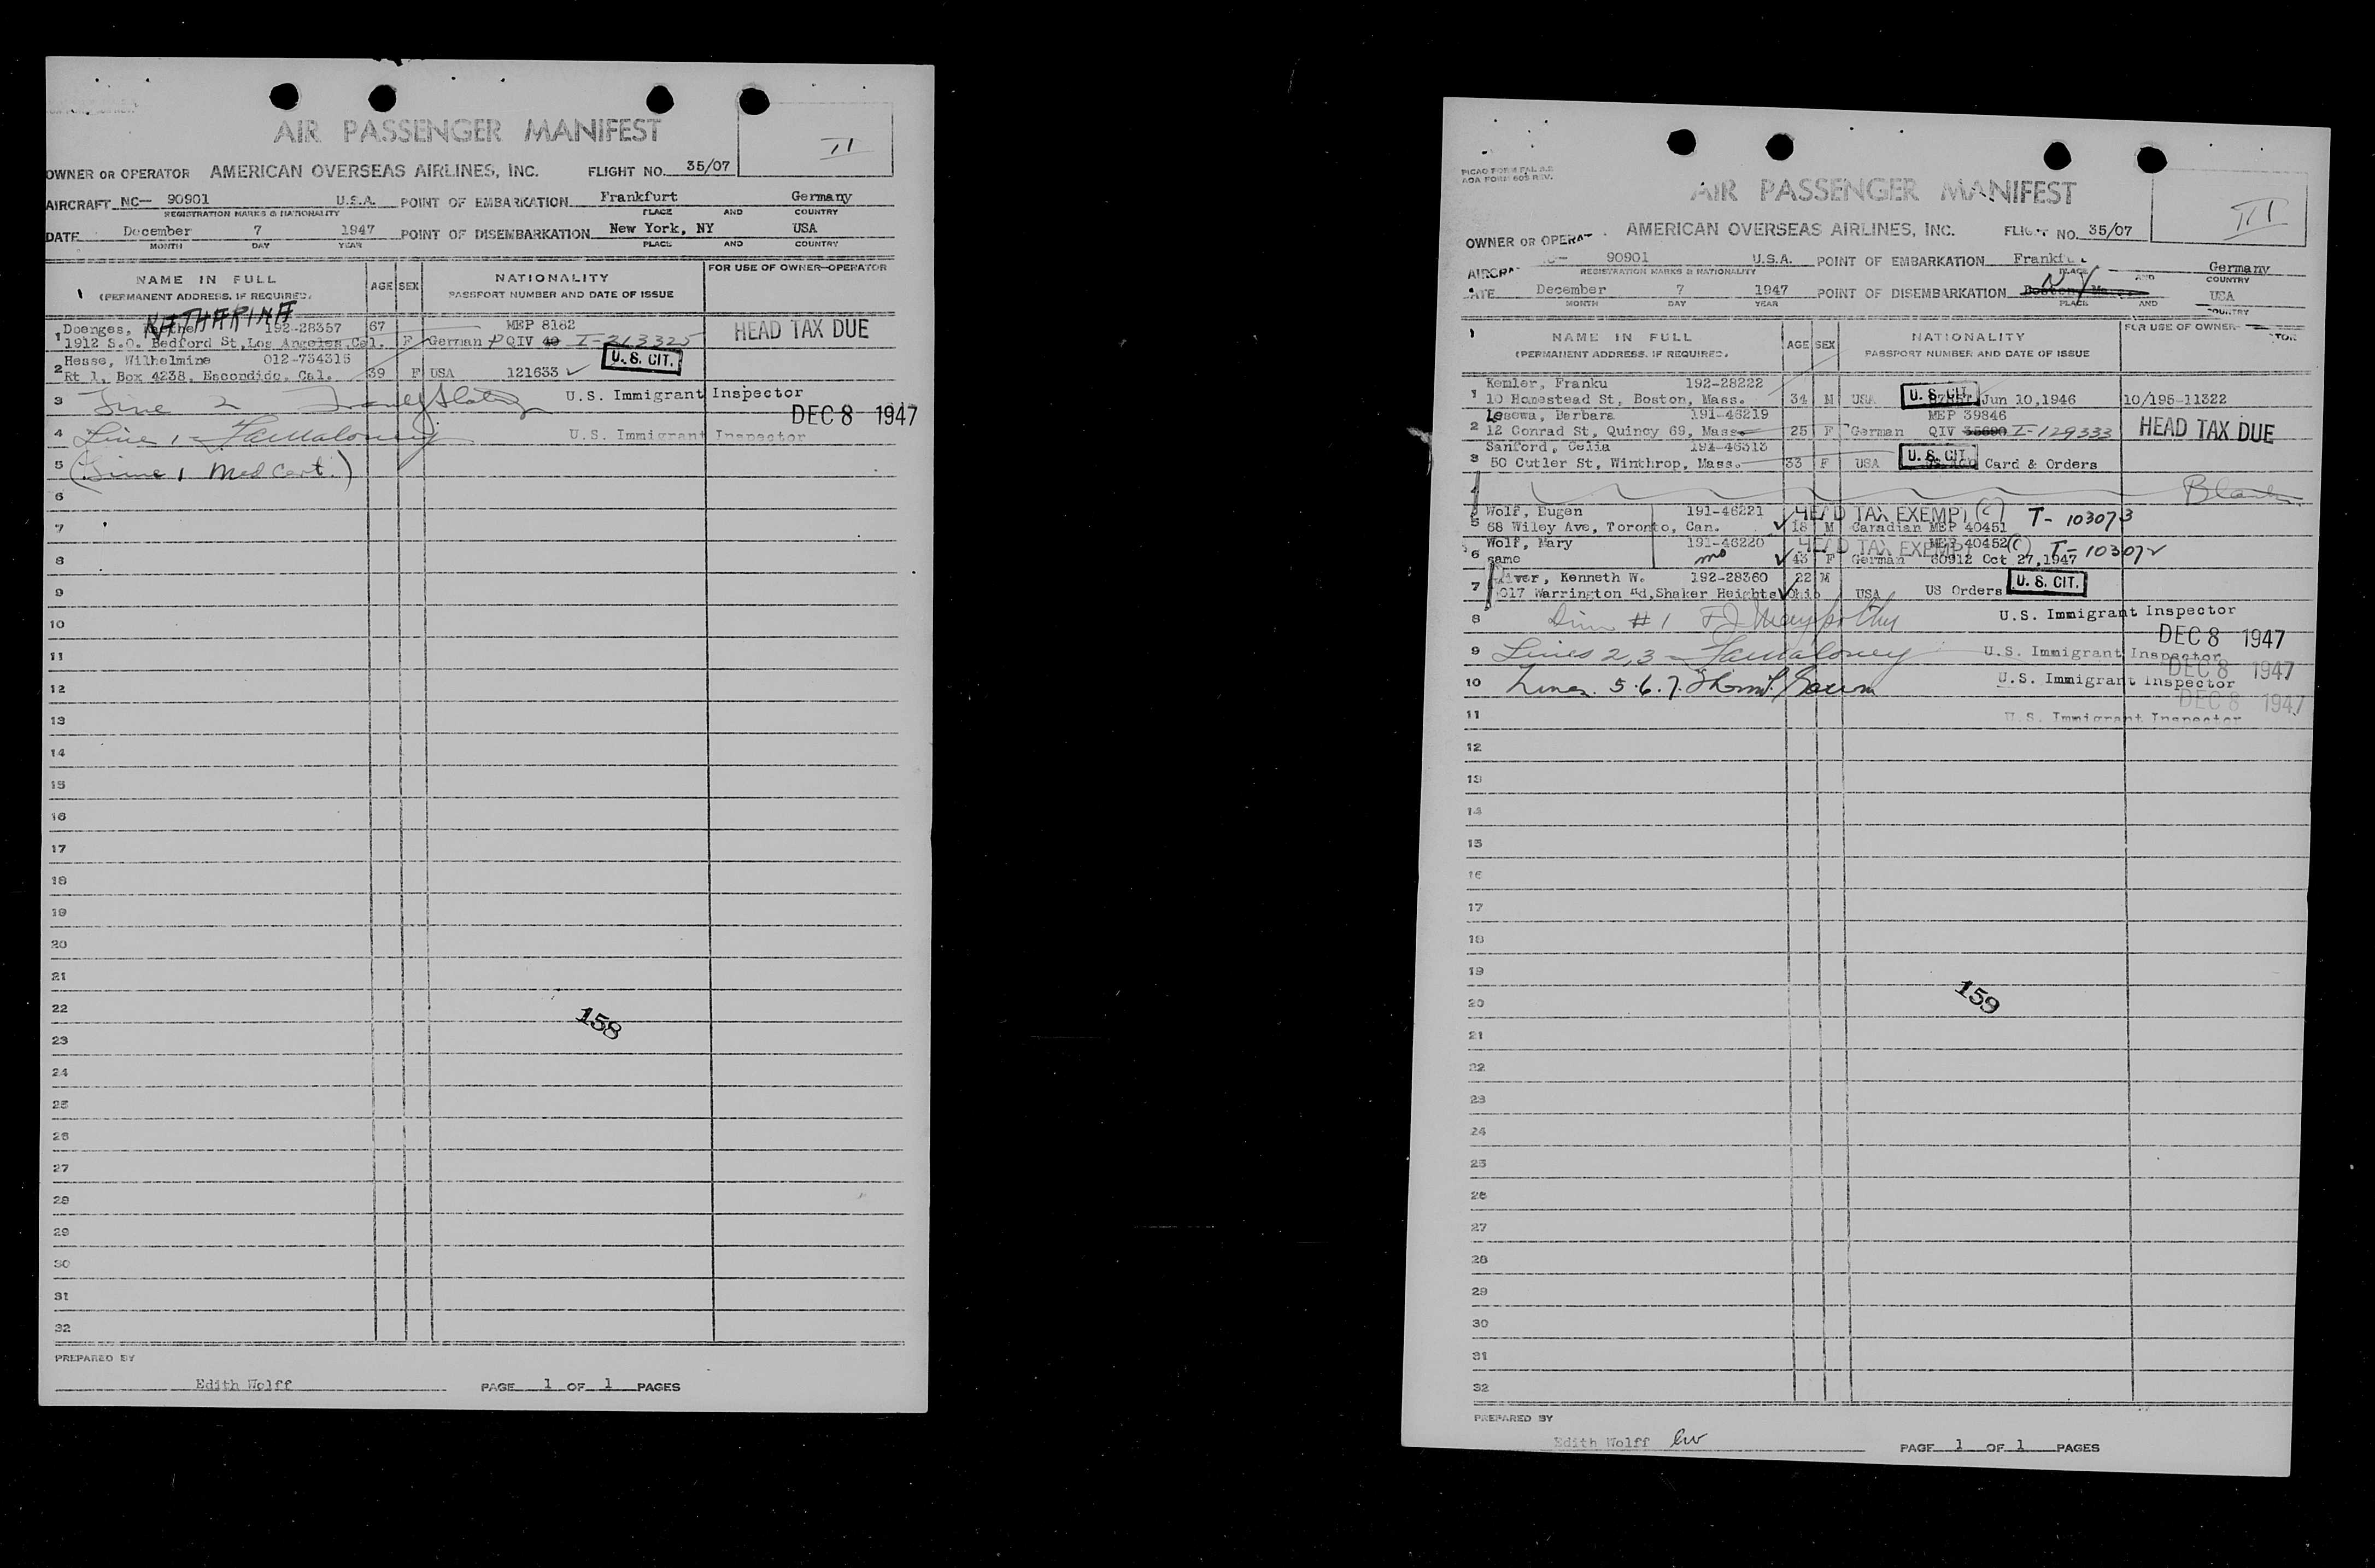 AIR PASSENGER MANIFEST
II
OWNER OR OPERATOR AMERICAN OVERSEAS AIRLINES, INC. FLIGHT NO. 35/07
AIRCRAFT NC— 90901 U.S.A. POINT OF EMBARKATION Frankfurt Germany
REGISTRATION MARKS & NATIONALITY PLACE AND COUNTRY
DATE December 7 1947 POINT OF DISEMBARKATION New York, NY USA
MONTH DAY YEAR PLACE AND COUNTRY
NAME IN FULL AGE SEX NATIONALITY FOR USE OF OWNER—OPERATOR
(PERMANENT ADDRESS, IF REQUIRED) PASSPORT NUMBER AND DATE OF ISSUE
KATHARINA
1 Doenges, 192-28357 67 MEP 8182 HEAD TAX DUE
1912 S.O. Bedford St, Los Angeles Cal. F German P QIV 40 I-313325
U.S. CIT.
Hesse, Wilhelmine 012-734315
2 Rt 1, Box 4238, Escondido, Cal. 39 F USA 121633
3 Line 2 U.S. Immigrant Inspector
DEC 8 1947
4 Line 1 - U.S. Immigrant Inspector
5 (Line 1 Med Cert.)
6
7
8
9
10
11
12
13
14
15
16
17
18
19
20
21
22
158
23
24
25
26
27
28
29
30
31
32
PREPARED BY
Edith Wolff PAGE 1 OF 1 PAGES
PICAO FORM
AOA FORM 605 REV.
AIR PASSENGER MANIFEST
III
OWNER OR AMERICAN OVERSEAS AIRLINES, INC. NO. 35/07
90901 U.S.A. POINT OF EMBARKATION Germany
REGISTRATION MARKS & NATIONALITY PLACE AND COUNTRY
NY
December 7 1947 POINT OF DISEMBARKATION USA
MONTH DAY YEAR PLACE AND
NAME IN FULL AGE SEX NATIONALITY FOR USE OF OWNER—
(PERMANENT ADDRESS, IF REQUIRED) PASSPORT NUMBER AND DATE OF ISSUE
Kemler, Franku 192-28222
1 10 Homestead St, Boston, Mass. 34 M USA U.S. CIT. Jun 10,1946 10/195-11322
Barbara 191-46219 MEP 39846
2 12 Conrad St, Quincy 69, Mass. 25 F German QIV 35690 I-129333 HEAD TAX DUE
Sanford, Celia 191-46313
3 50 Cutler St, Winthrop, Mass. 33 F USA U.S. CIT. Card & Orders
4 Blank
Wolf, Eugen 191-46221 HEAD TAX EXEMPT (C) T-103073
5 68 Wiley Ave, Toronto, Can. 18 M Canadian MEP 40451
Wolf, Mary 191-46220 HEAD TAX EXEMPT MEP 40452 (C) T-103072
6 same 43 F German 60912 Oct 27,1947
Kenneth W. 192-28360 22 M U.S. CIT.
7 Warrington Rd, Shaker Heights Ohio USA US Orders
8 #1 U.S. Immigrant Inspector
DEC 8 1947
9 Lines 2,3 - U.S. Immigrant Inspector
DEC 8 1947
10 Lines. 5.6.7. U.S. Immigrant Inspector
DEC 8 1947
11 U.S. Immigrant Inspector
12
13
14
15
16
17
18
19
159
20
21
22
23
24
25
26
27
28
29
30
31
32
PREPARED BY
Edith Wolff ew PAGE 1 OF 1 PAGES